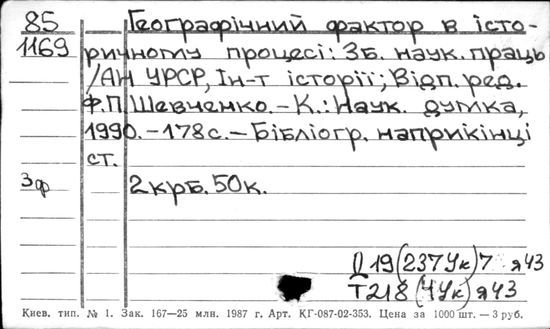 85 Географічний фактор в істо-
1169 ричному процесі: Зб. наук. праць
/АН УРСР, Ін-т історії; Відп. ред.
Ф.П. Шевченко. - К.: Наук. думка,
1990. - 178 с. - Бібліогр. наприкінці
ст.
3ф 2 крб. 50 к.
Д19(237Ук)7 я43
Т218(4Ук)я43
Киев. тип. № 1. Зак. 167—25 млн. 1987 г. Арт. КГ-087-02-353. Цена за 1000 шт. — 3 руб.